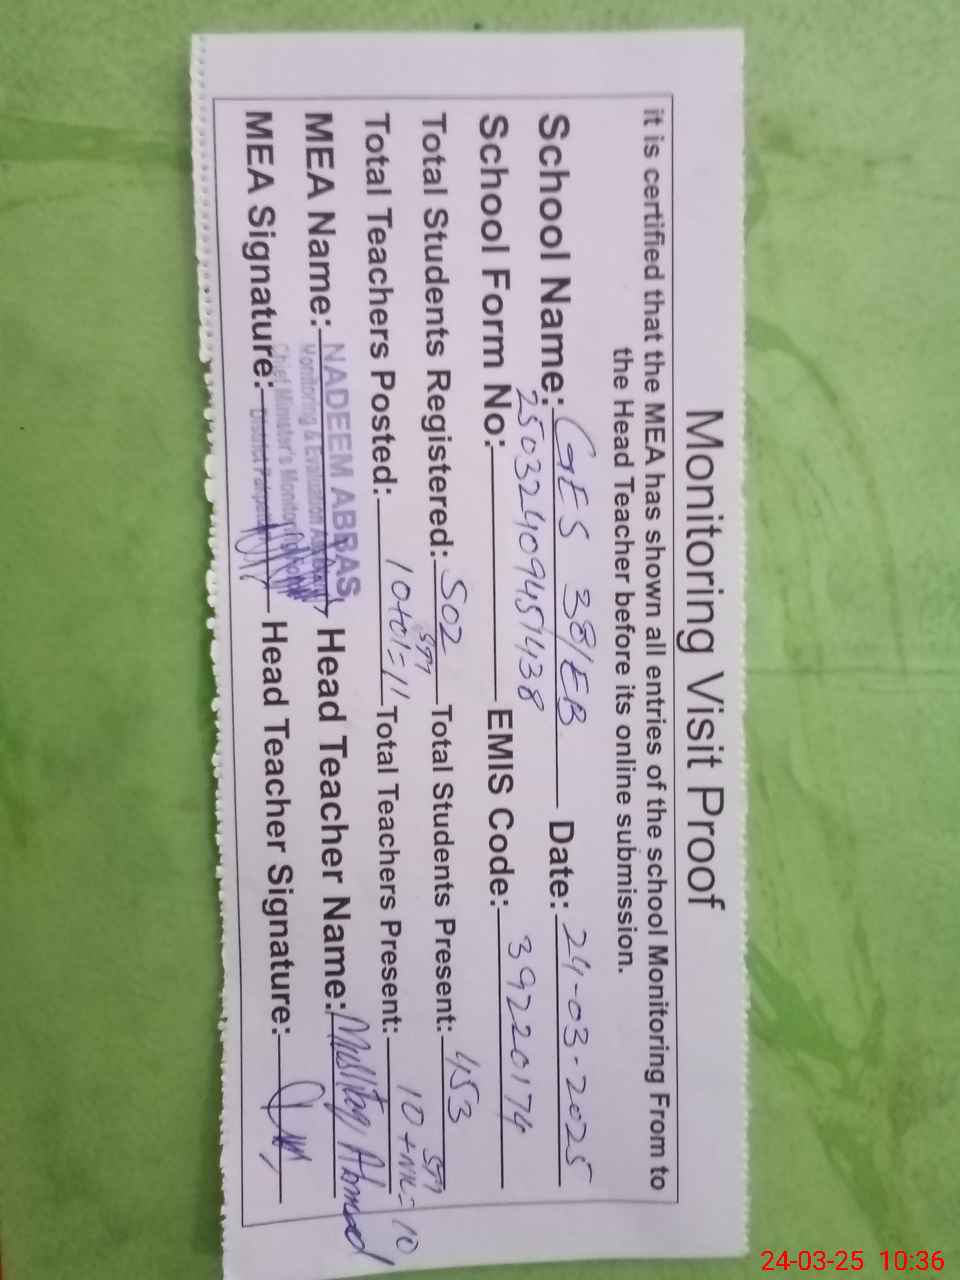 Monitoring Visit Proof
it is certified that the MEA has shown all entries of the school Monitoring From to
the Head Teacher before its online submission.
School Name: GES 38/EB Date: 24-03-2025
School Form No: 25032409451438 EMIS Code: 39220174
Total Students Registered: 502 Total Students Present: 453
Total Teachers Posted: 10+01=11 Total Teachers Present: 10+NIL=10
MEA Name: NADEEM ABBAS Head Teacher Name: Mushtaq Ahmad
Monitoring & Evaluation
Chief Minister's Monitoring
District Pakpattan
MEA Signature: Head Teacher Signature:
24-03-25 10:36